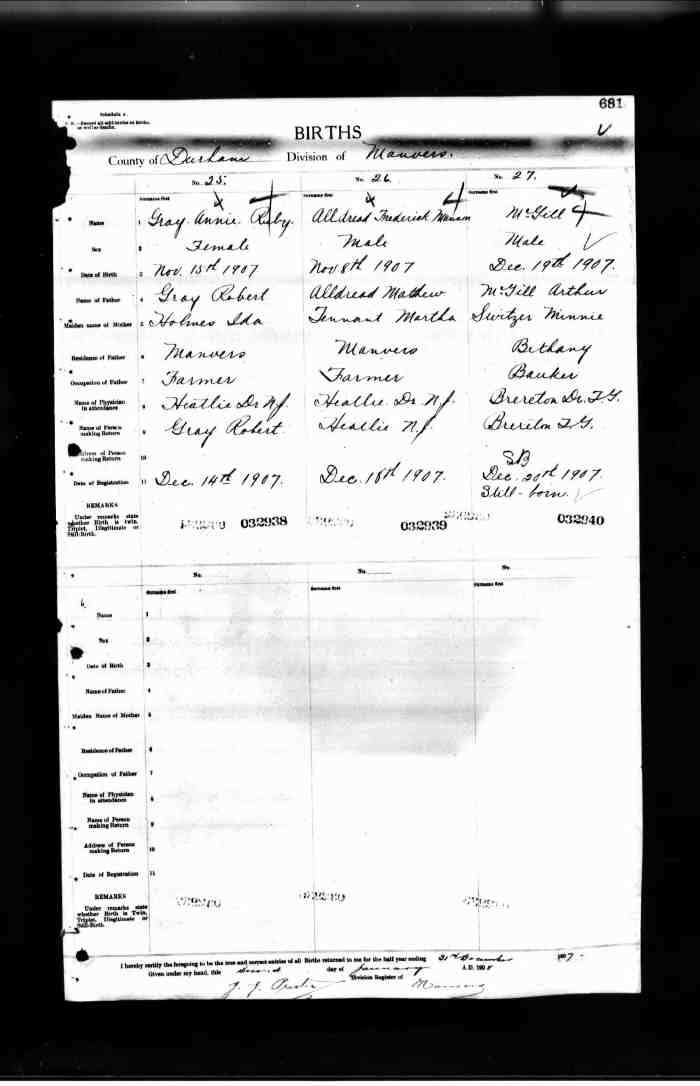 681
Schedule A.
BIRTHS
County of Durham Division of Manvers.
No. 25. No. 26. No. 27.
Surname first Surname first Surname first
Name 1 Gray Annie Ruby. Alldread Frederick McGill
Sex 2 Female Male Male
Date of Birth 3 Nov. 15th 1907 Nov 8th 1907 Dec. 19th 1907.
Name of Father 4 Gray Robert Alldread Mathew McGill Arthur
Maiden name of Mother 5 Holmes Ida Tennant Martha Switzer Minnie
Residence of Father 6 Manvers Manvers Bethany
Occupation of Father 7 Farmer Farmer Banker
Name of Physician
in attendance 8 Heatlie Dr N.J. Heatlie Dr. N.J. Brereton Dr. T.G.
Name of Person
making Return 9 Gray Robert. Heatlie N.J. Brereton T.G.
Address of Person
making Return 10
SB
Date of Registration 11 Dec. 14th 1907. Dec. 18th 1907. Dec. 20th 1907.
Still-born.
REMARKS
Under remarks state
whether Birth is twin,
Triplet, Illegitimate or
Still-Birth.
032938 032939 032940
No. No. No.
Surname first Surname first Surname first
Name 1
Sex 2
Date of Birth 3
Name of Father 4
Maiden Name of Mother 5
Residence of Father 6
Occupation of Father 7
Name of Physician
in attendance 8
Name of Person
making Return 9
Address of Person
making Return 10
Date of Registration 11
REMARKS
Under remarks state
whether Birth is Twin,
Triplet, Illegitimate or
Still-Birth.
I hereby certify the foregoing to be the true and correct entries of all Births returned to me for the half year ending 31st December 1907.
Given under my hand, this second day of January A.D. 1908
J. J. Division Registrar of Manvers